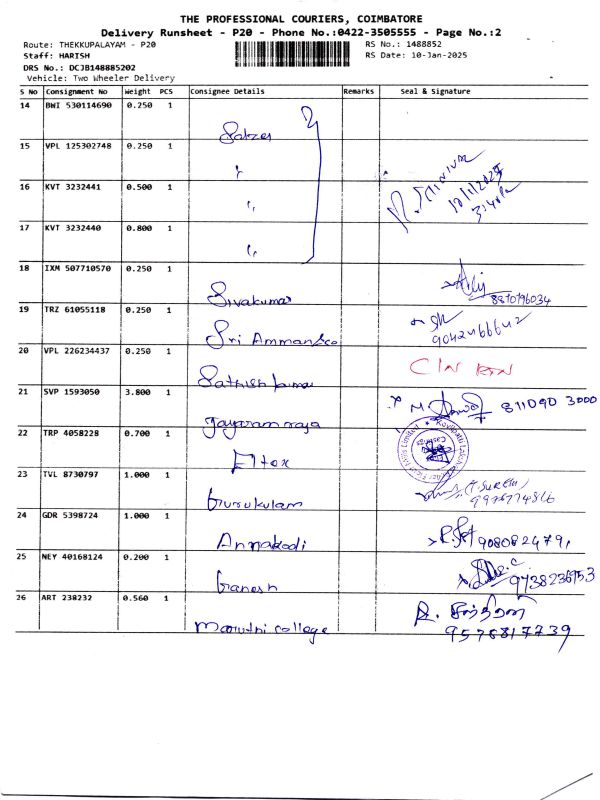 THE PROFESSIONAL COURIERS, COIMBATORE
Delivery Runsheet - P20 - Phone No.:0422-3505555 - Page No.:2
Route: THEKKUPALAYAM - P20 RS No.: 1488852
Staff: HARISH RS Date: 10-Jan-2025
DRS No.: DCJB148885202
Vehicle: Two Wheeler Delivery
S No Consignment No Weight PCS Consignee Details Remarks Seal & Signature
14 BWI 530114690 0.250 1
15 VPL 125302748 0.250 1
16 KVT 3232441 0.500 1 10/1/2025
17 KVT 3232440 0.800 1
18 IXM 507710570 0.250 1 Sivakumar 8870796034
19 TRZ 61055118 0.250 1 Sri Amman &co 9042466642
20 VPL 226234437 0.250 1 Sathish kumar
21 SVP 1593050 3.800 1 Jayaram raja 811090 3000
22 TRP 4058228 0.700 1 Eltex
23 TVL 8730797 1.000 1 Gurukulam
24 GDR 5398724 1.000 1 Annakodi
25 NEY 40168124 0.200 1 Ganesh
26 ART 238232 0.560 1 Maruthi college 9576817739